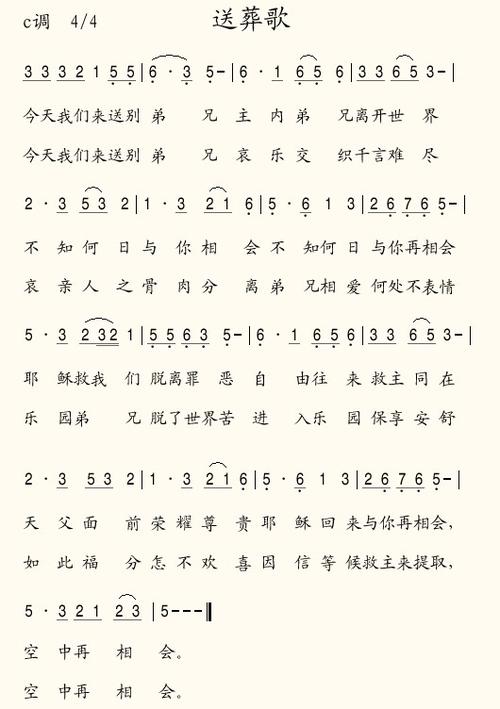 送葬歌
c调 4/4
3 3 3 2 1 5 5 | 6 · 3 5 - | 6 · 1 6 5 6 | 3 3 6 5 3 - |
今天我们来送别 弟 兄 主 内 弟 兄离开世 界
今天我们来送别 弟 兄 哀 乐 交 织千言难 尽
2 · 3 5 3 2 | 1 · 3 2 1 6 | 5 · 6 1 3 | 2 6 7 6 5 - |
不 知 何 日 与 你 相 会 不 知何 日 与你再相会
哀 亲 人 之 骨 肉 分 离 弟 兄相 爱 何处不表情
5 · 3 2 3 2 1 | 5 5 6 3 5 - | 6 · 1 6 5 6 | 3 3 6 5 3 - |
耶 稣救我 们 脱离罪 恶 自 由往 来 救主 同 在
乐 园弟 兄 脱了世界苦 进 入乐 园 保享 安 舒
2 · 3 5 3 2 | 1 · 3 2 1 6 | 5 · 6 1 3 | 2 6 7 6 5 - |
天 父 面 前 荣 耀 尊 贵 耶 稣 回 来与你再相会,
如 此 福 分 怎 不 欢 喜 因 信 等 候救主来提取,
5 · 3 2 1 2 3 | 5 - - - ‖
空 中再 相 会。
空 中再 相 会。